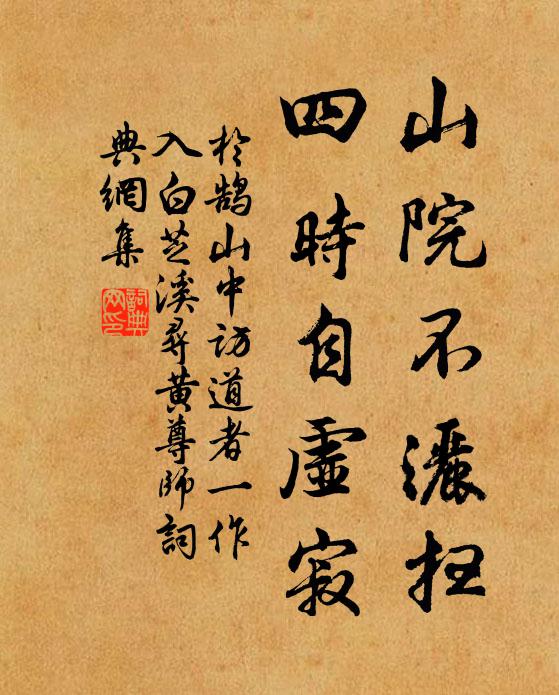 山院不灑扫
四時自虛寂
於鵠山中訪道者一作
入白芝溪尋黄尊師詞
典網集
詞典
网印